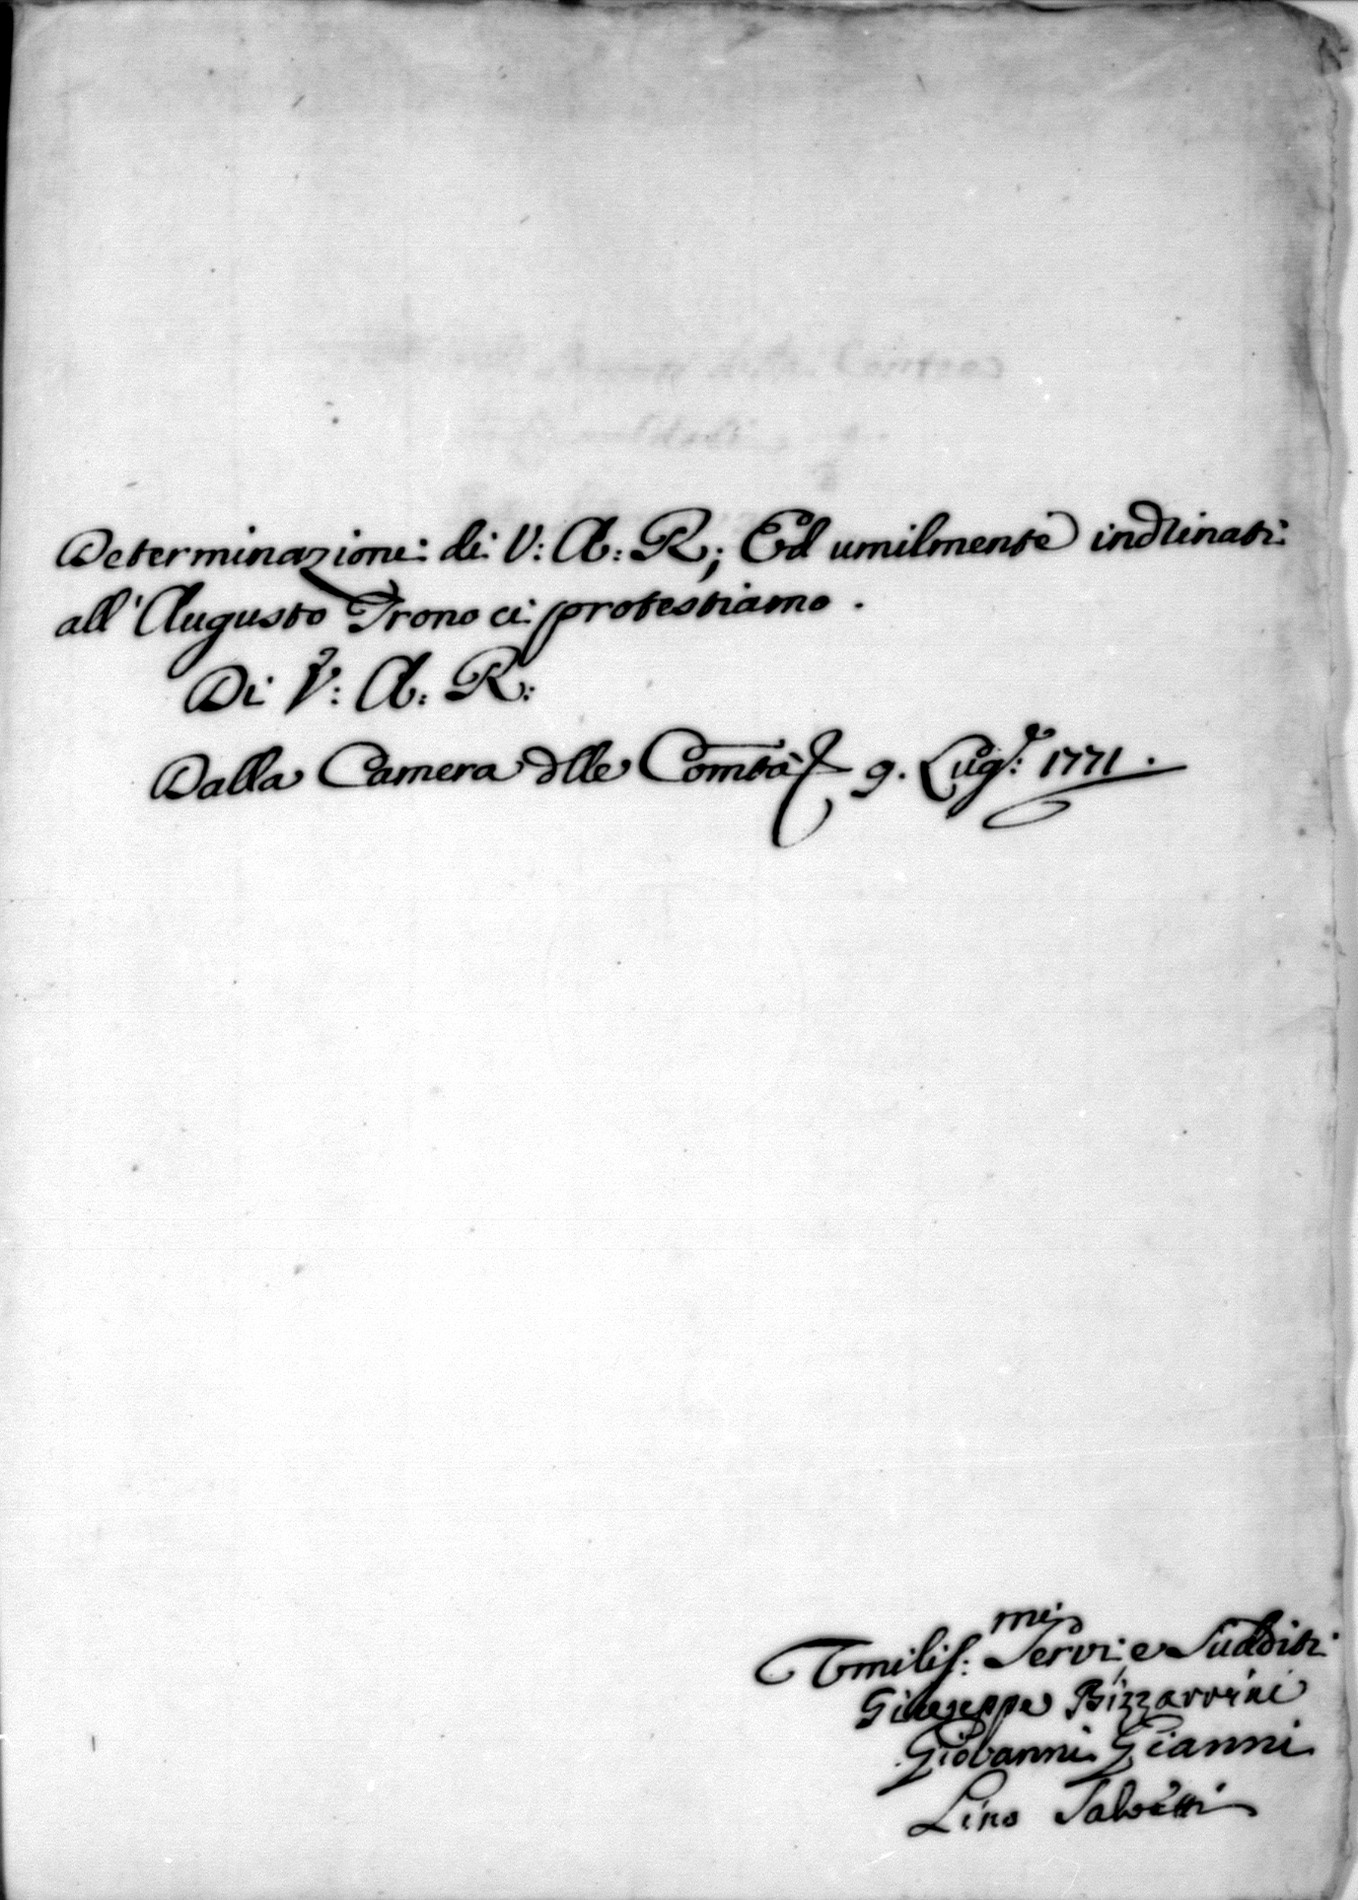 Determinazioni di V: A: R; Ed umilmente inclinati
all'Augusto Trono ci protestiamo.
Di V: A: R:
Dalla Camera dlle Comtà 9. Lugº: 1771.
Umilis:mi Servi e Sudditi
Giuseppe Bizzarrini
Giovanni Gianni
Lino Salvetti